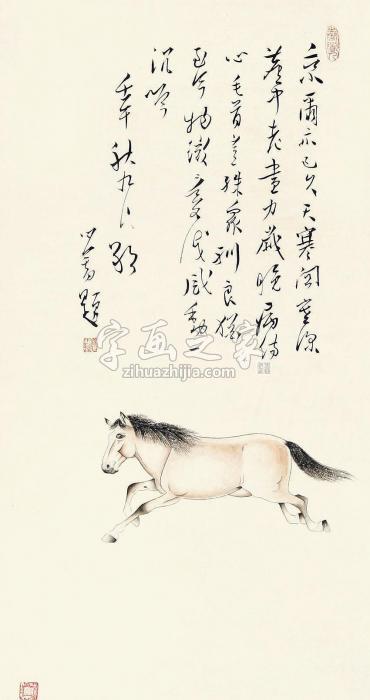 乘爾亦已久天寒關塞深
塵中老盡力歲晚病傷
心毛骨豈殊衆馴良猶
至今物微意不淺感動一
沉吟
壬午秋九月
心畬題
字画之家
zihuazhijia.com